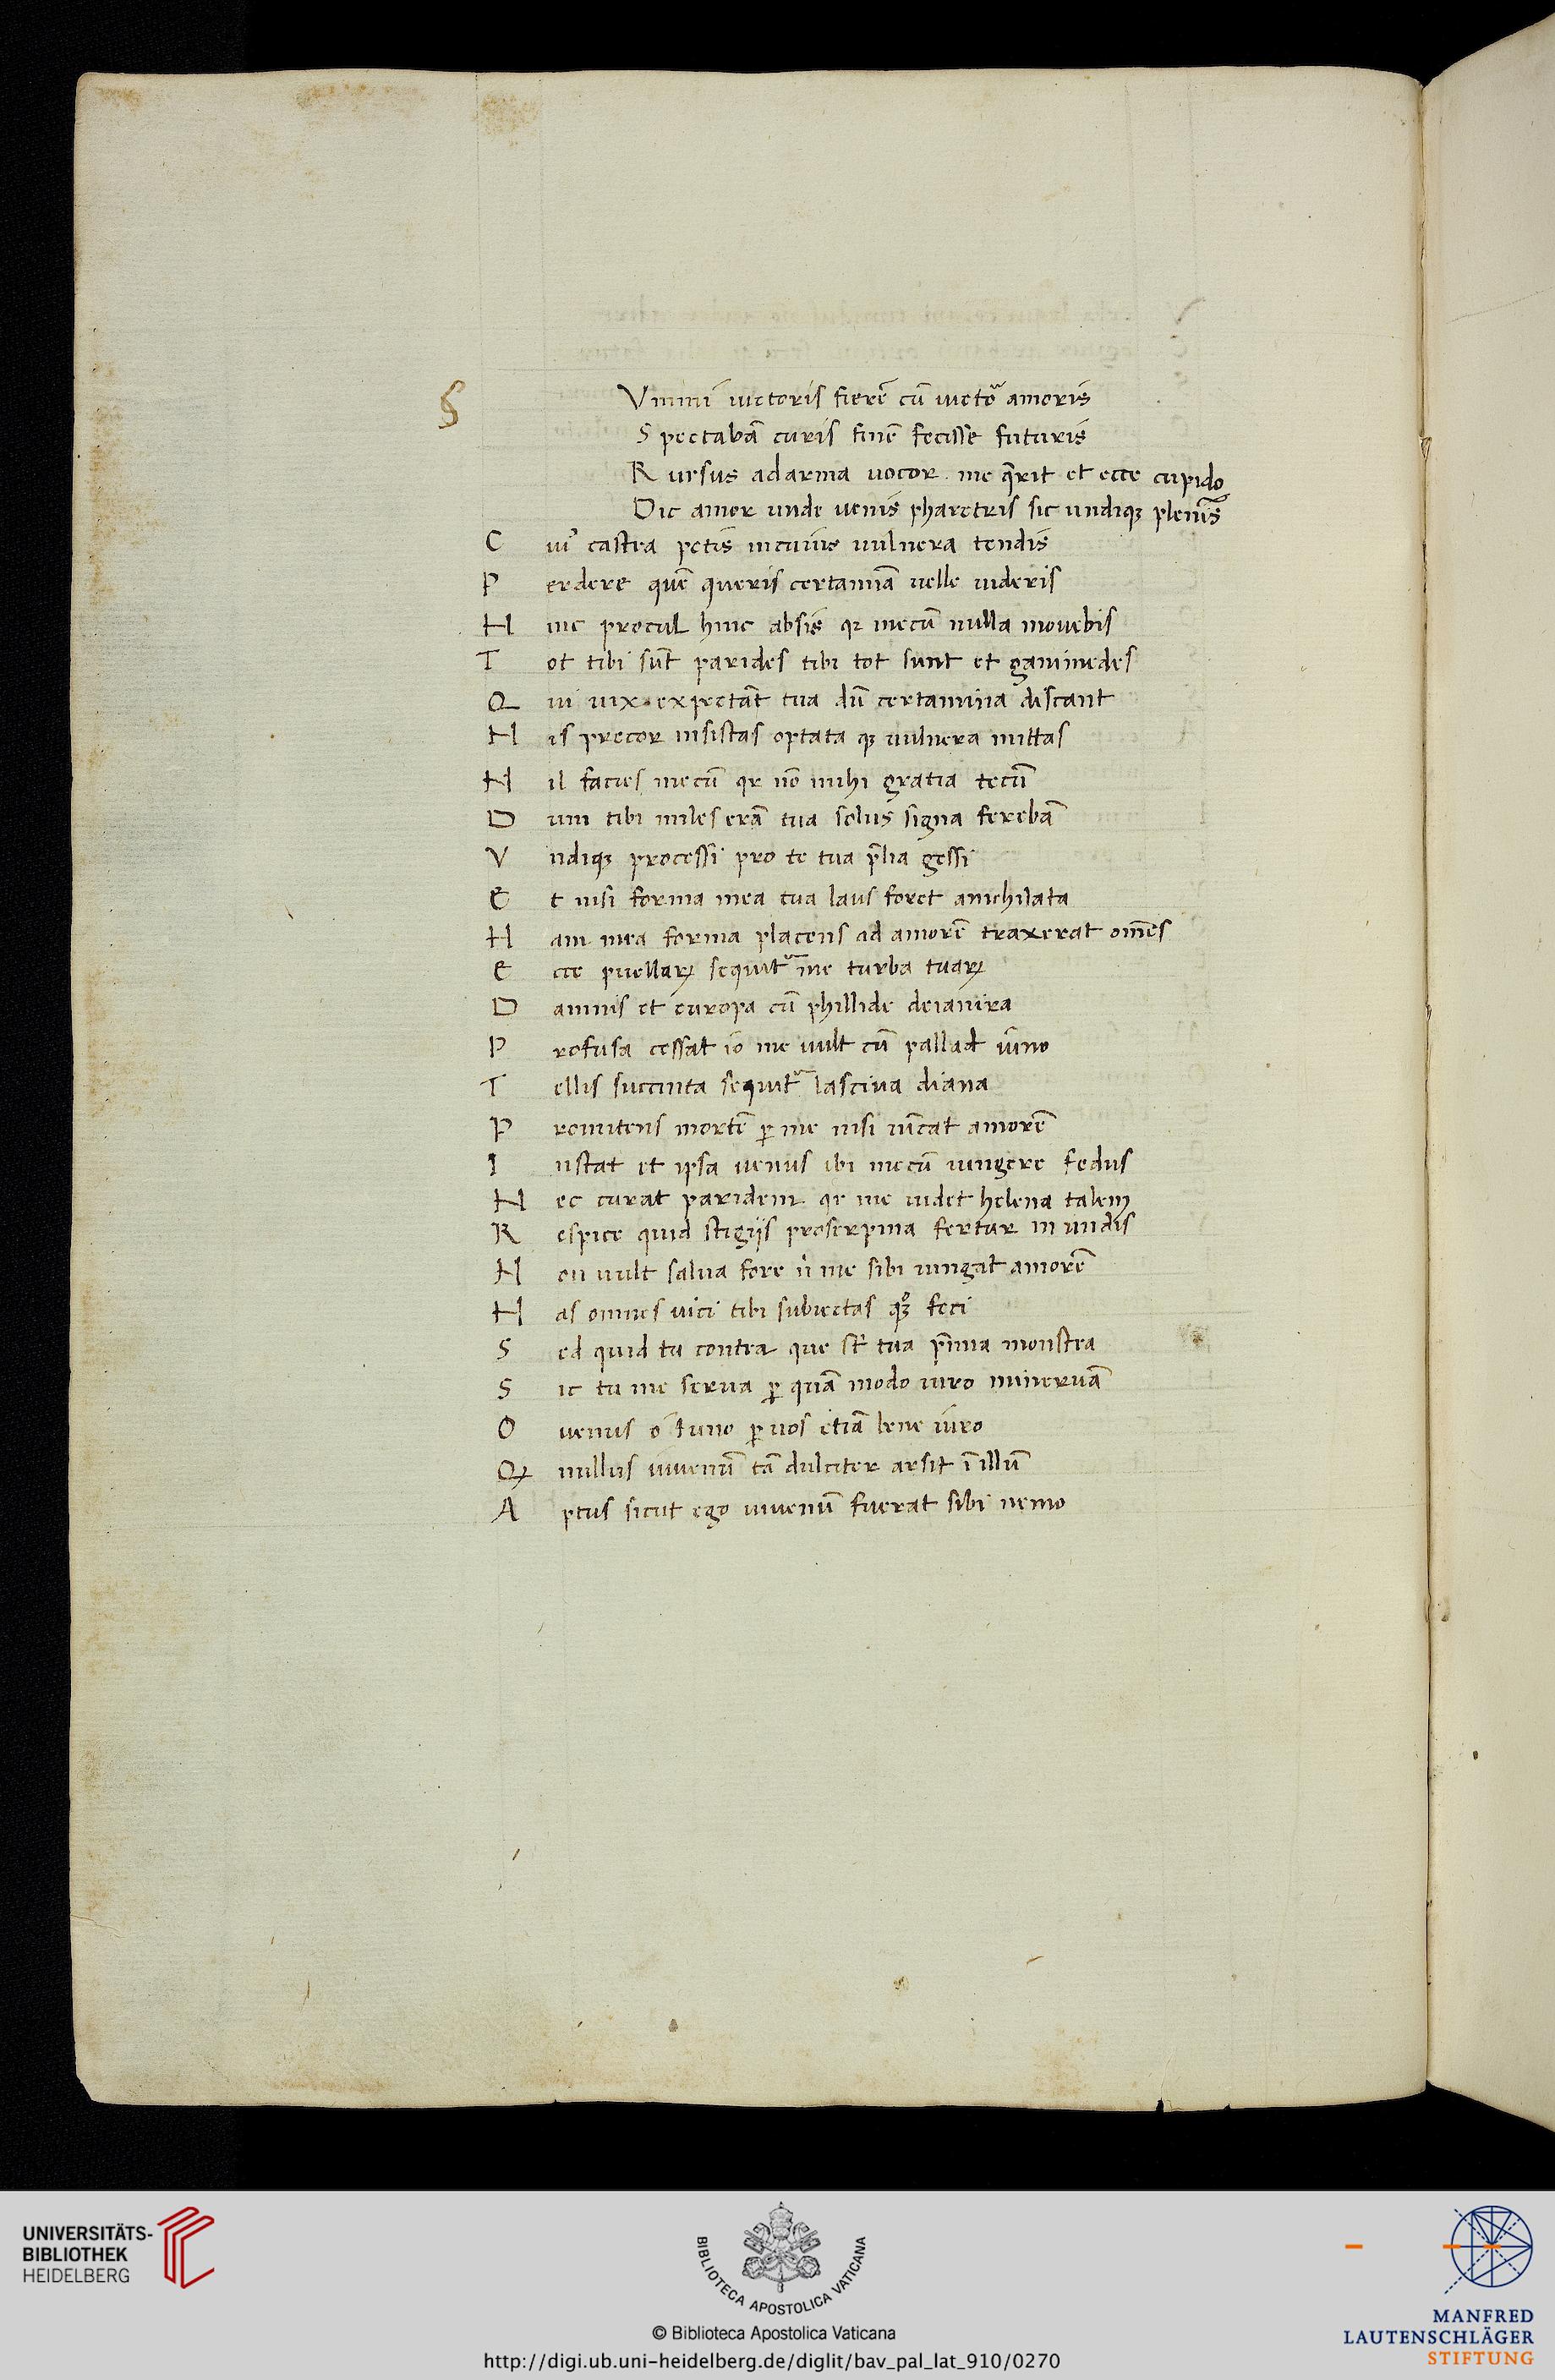 § Vnius uictoris fierē cū uictoʳ amoris
Spectabā curis finē fecisse futuris
Rursus ad arma uocor. me q̄rit et ecce cupido
Dic amor unde uenis pharetris sic undiqꝫ plenis
Cui' castra petis in cuius uulnera tendis
Perdere quē queris certaminā uelle uideris
Hinc procul hinc absis qꝛ mecū nulla mouebis
Tot tibi sūt parides tibi tot sunt et ganimedes
Qui uix expectāt tua dū certamina discant
His precor insistas optata qꝫ uulnera mittas
Nil facies mecū qꝛ nō mihi gratia tecū
Dum tibi miles erā tua solus signa ferebā
Vndiqꝫ processi pro te tua p̄lia gessi
Et nisi forma mea tua laus foret anichilata
Nam mea forma placens ad amorē traxerat om̄es
Ecce puellaꝝ sequit᷑ me turba tuaꝝ
Damnis et europa cū phillide deianira
Profusa cessat io me uult cū pallad iuno
Tellis succinta sequit᷑ lasciua diana
Promitens mortē ꝑ me nisi uīcat amorē
Instat et ipsa uenus ibi mecū iungere fedus
Nec curat paridem qꝛ me uidet helena talem
Respice quid stigijs proserpina fertur in undis
Non uult salua fore n̄ me sibi iungat amorē
Has omnes uici tibi subiectas qꝫ feci
Sed quid tu contra que st̄ tua p̄mia monstra
Sic tu me serua ꝑ quā modo iuro mineruā
O uenus o iuno ꝑ uos etiā bene iuro
Qꝫ nullus iuuenū tā dulciter arsit ī illū
Aptus sicut ego iuuenū fuerat sibi nemo
UNIVERSITÄTS-
BIBLIOTHEK
HEIDELBERG
BIBLIOTECA APOSTOLICA VATICANA
© Biblioteca Apostolica Vaticana
http://digi.ub.uni-heidelberg.de/diglit/bav_pal_lat_910/0270
MANFRED
LAUTENSCHLÄGER
STIFTUNG